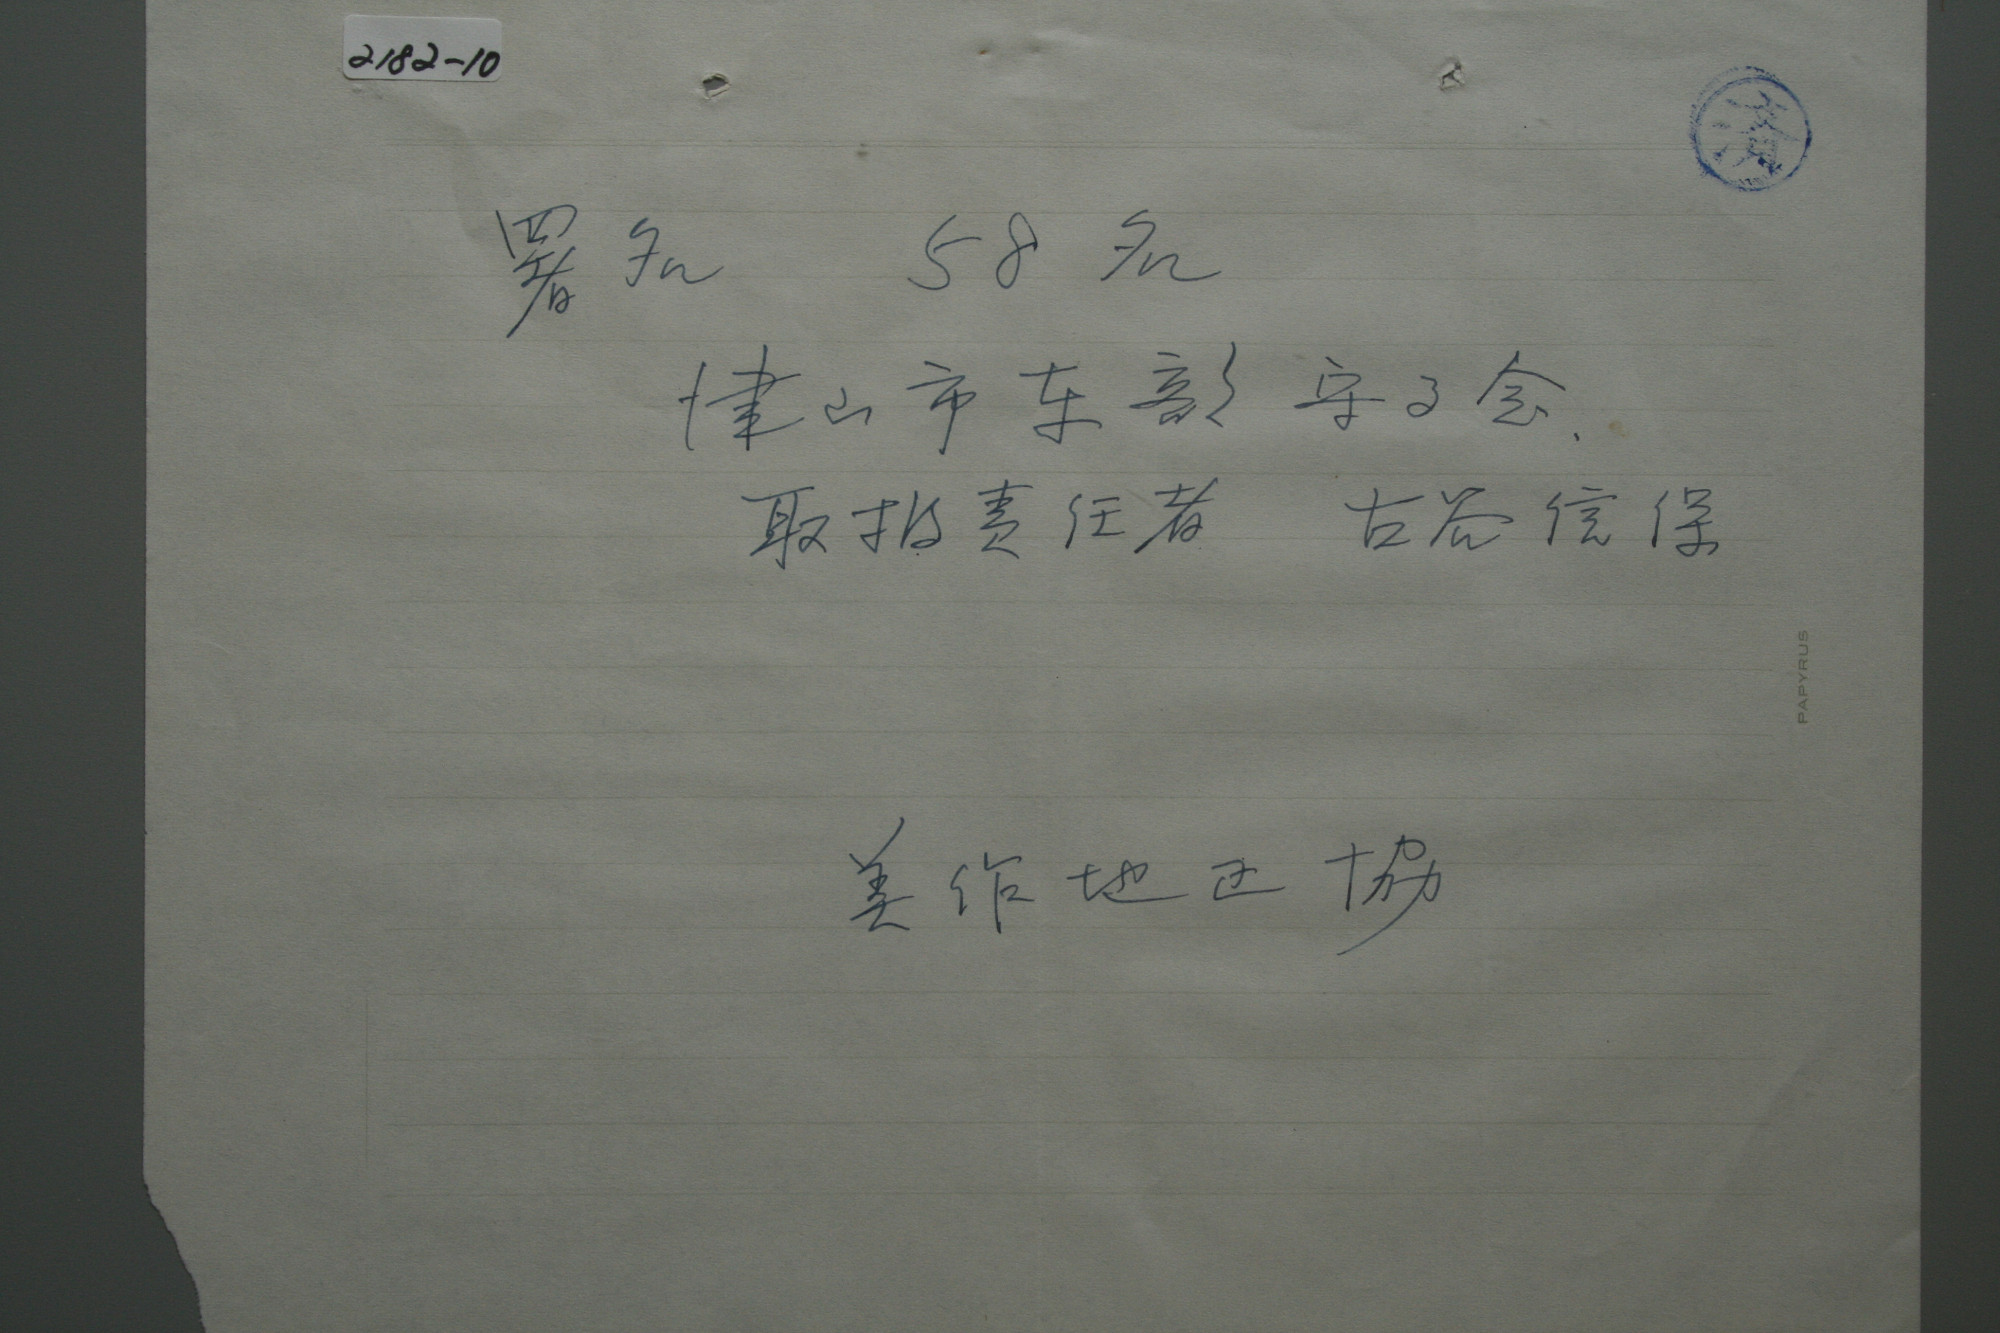 2182-10
済
署名 58名
津山市東部守る会、
取扱責任者 古谷信保
PAPYRUS
美作地区協